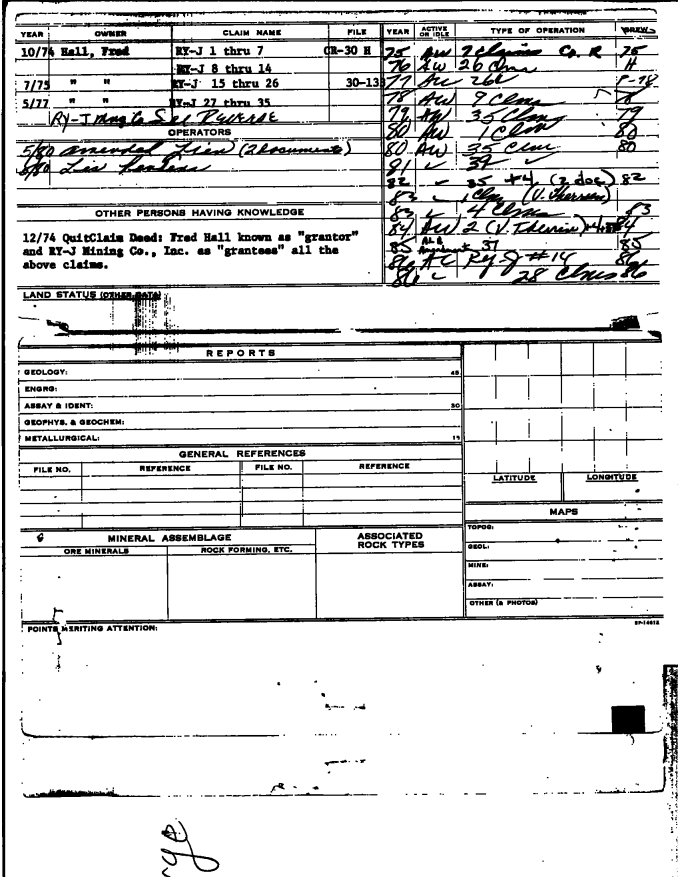 YEAR OWNER CLAIM NAME FILE YEAR ACTIVE OR IDLE TYPE OF OPERATION
10/74 Hall, Fred RY-J 1 thru 7 CR-30 H 75 AW 7 Claims Co. R 75
RY-J 8 thru 14 76 AW 26 Clms H
7/75 " " RY-J 15 thru 26 30-13 77
5/77 " " RY-J 27 thru 35 78 AW 9 Clms
RY-J Mng Co See Reverse 79 AW 35 Clms 79
OPERATORS 80 AW 1 Clm 80
5/80 amended Lien (2 documents) 80 AW 35 Clms 80
8/80 Lis Pendens 81 39
82 35 (2 doc) 82
83 1 Clm (V. Therrien)
OTHER PERSONS HAVING KNOWLEDGE 83 4 Clms 83
12/74 QuitClaim Deed: Fred Hall known as "grantor" 84 AW 2 84
and RY-J Mining Co., Inc. as "grantees" all the 85 37 85
above claims. 86 Ry-J #14 86
86 28 Clms 86
LAND STATUS (OTHER DATA)
REPORTS
GEOLOGY: 45
ENGRG:
ASSAY & IDENT: 30
GEOPHYS. & GEOCHEM:
METALLURGICAL: 15
GENERAL REFERENCES
FILE NO. REFERENCE FILE NO. REFERENCE
LATITUDE LONGITUDE
MAPS
MINERAL ASSEMBLAGE ASSOCIATED ROCK TYPES TOPOG:
ORE MINERALS ROCK FORMING, ETC. GEOL:
MINE:
ASSAY:
OTHER (& PHOTOS)
POINTS MERITING ATTENTION: